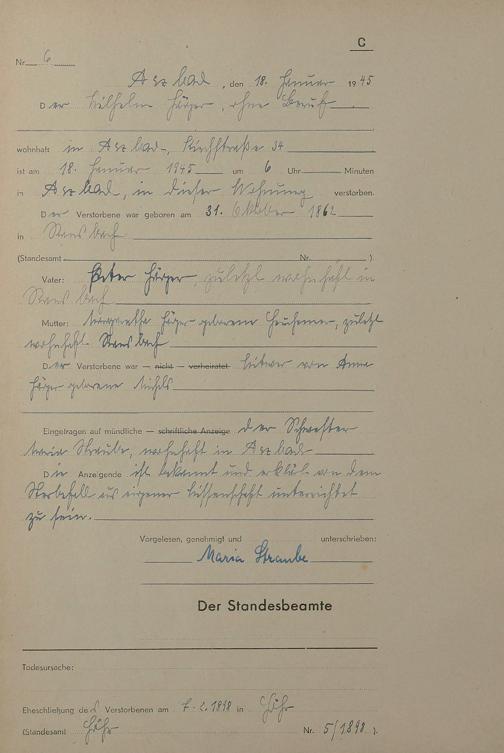 C
Nr. 6
Arzbach, den 18. Januar 1945
Der Wilhelm Hörger, ohne Beruf
wohnhaft in Arzbach, Kirchstraße 34
ist am 18. Januar 1945 um 6 Uhr Minuten
in Arzbach, in dieser Wohnung verstorben.
Der Verstorbene war geboren am 31. Oktober 1862
in
(Standesamt Nr. ).
Vater: Peter Hörger, zuletzt wohnhaft in
Mutter: Margaretha Hörger geborene zuletzt
wohnhaft
Der Verstorbene war — nicht — verheiratet Witwer von Anna
Hörger geborene
Eingetragen auf mündliche — schriftliche Anzeige der Schwester
Maria Straube, wohnhaft in Arzbach
Die Anzeigende ist bekannt und erklärt von dem
Sterbefall aus eigener Wissenschaft unterrichtet
zu sein.
Vorgelesen, genehmigt und unterschrieben:
Maria Straube
Der Standesbeamte
Todesursache:
Eheschließung des Verstorbenen am 7.2.1898 in Höhr
(Standesamt Höhr Nr. 5/1898 ).